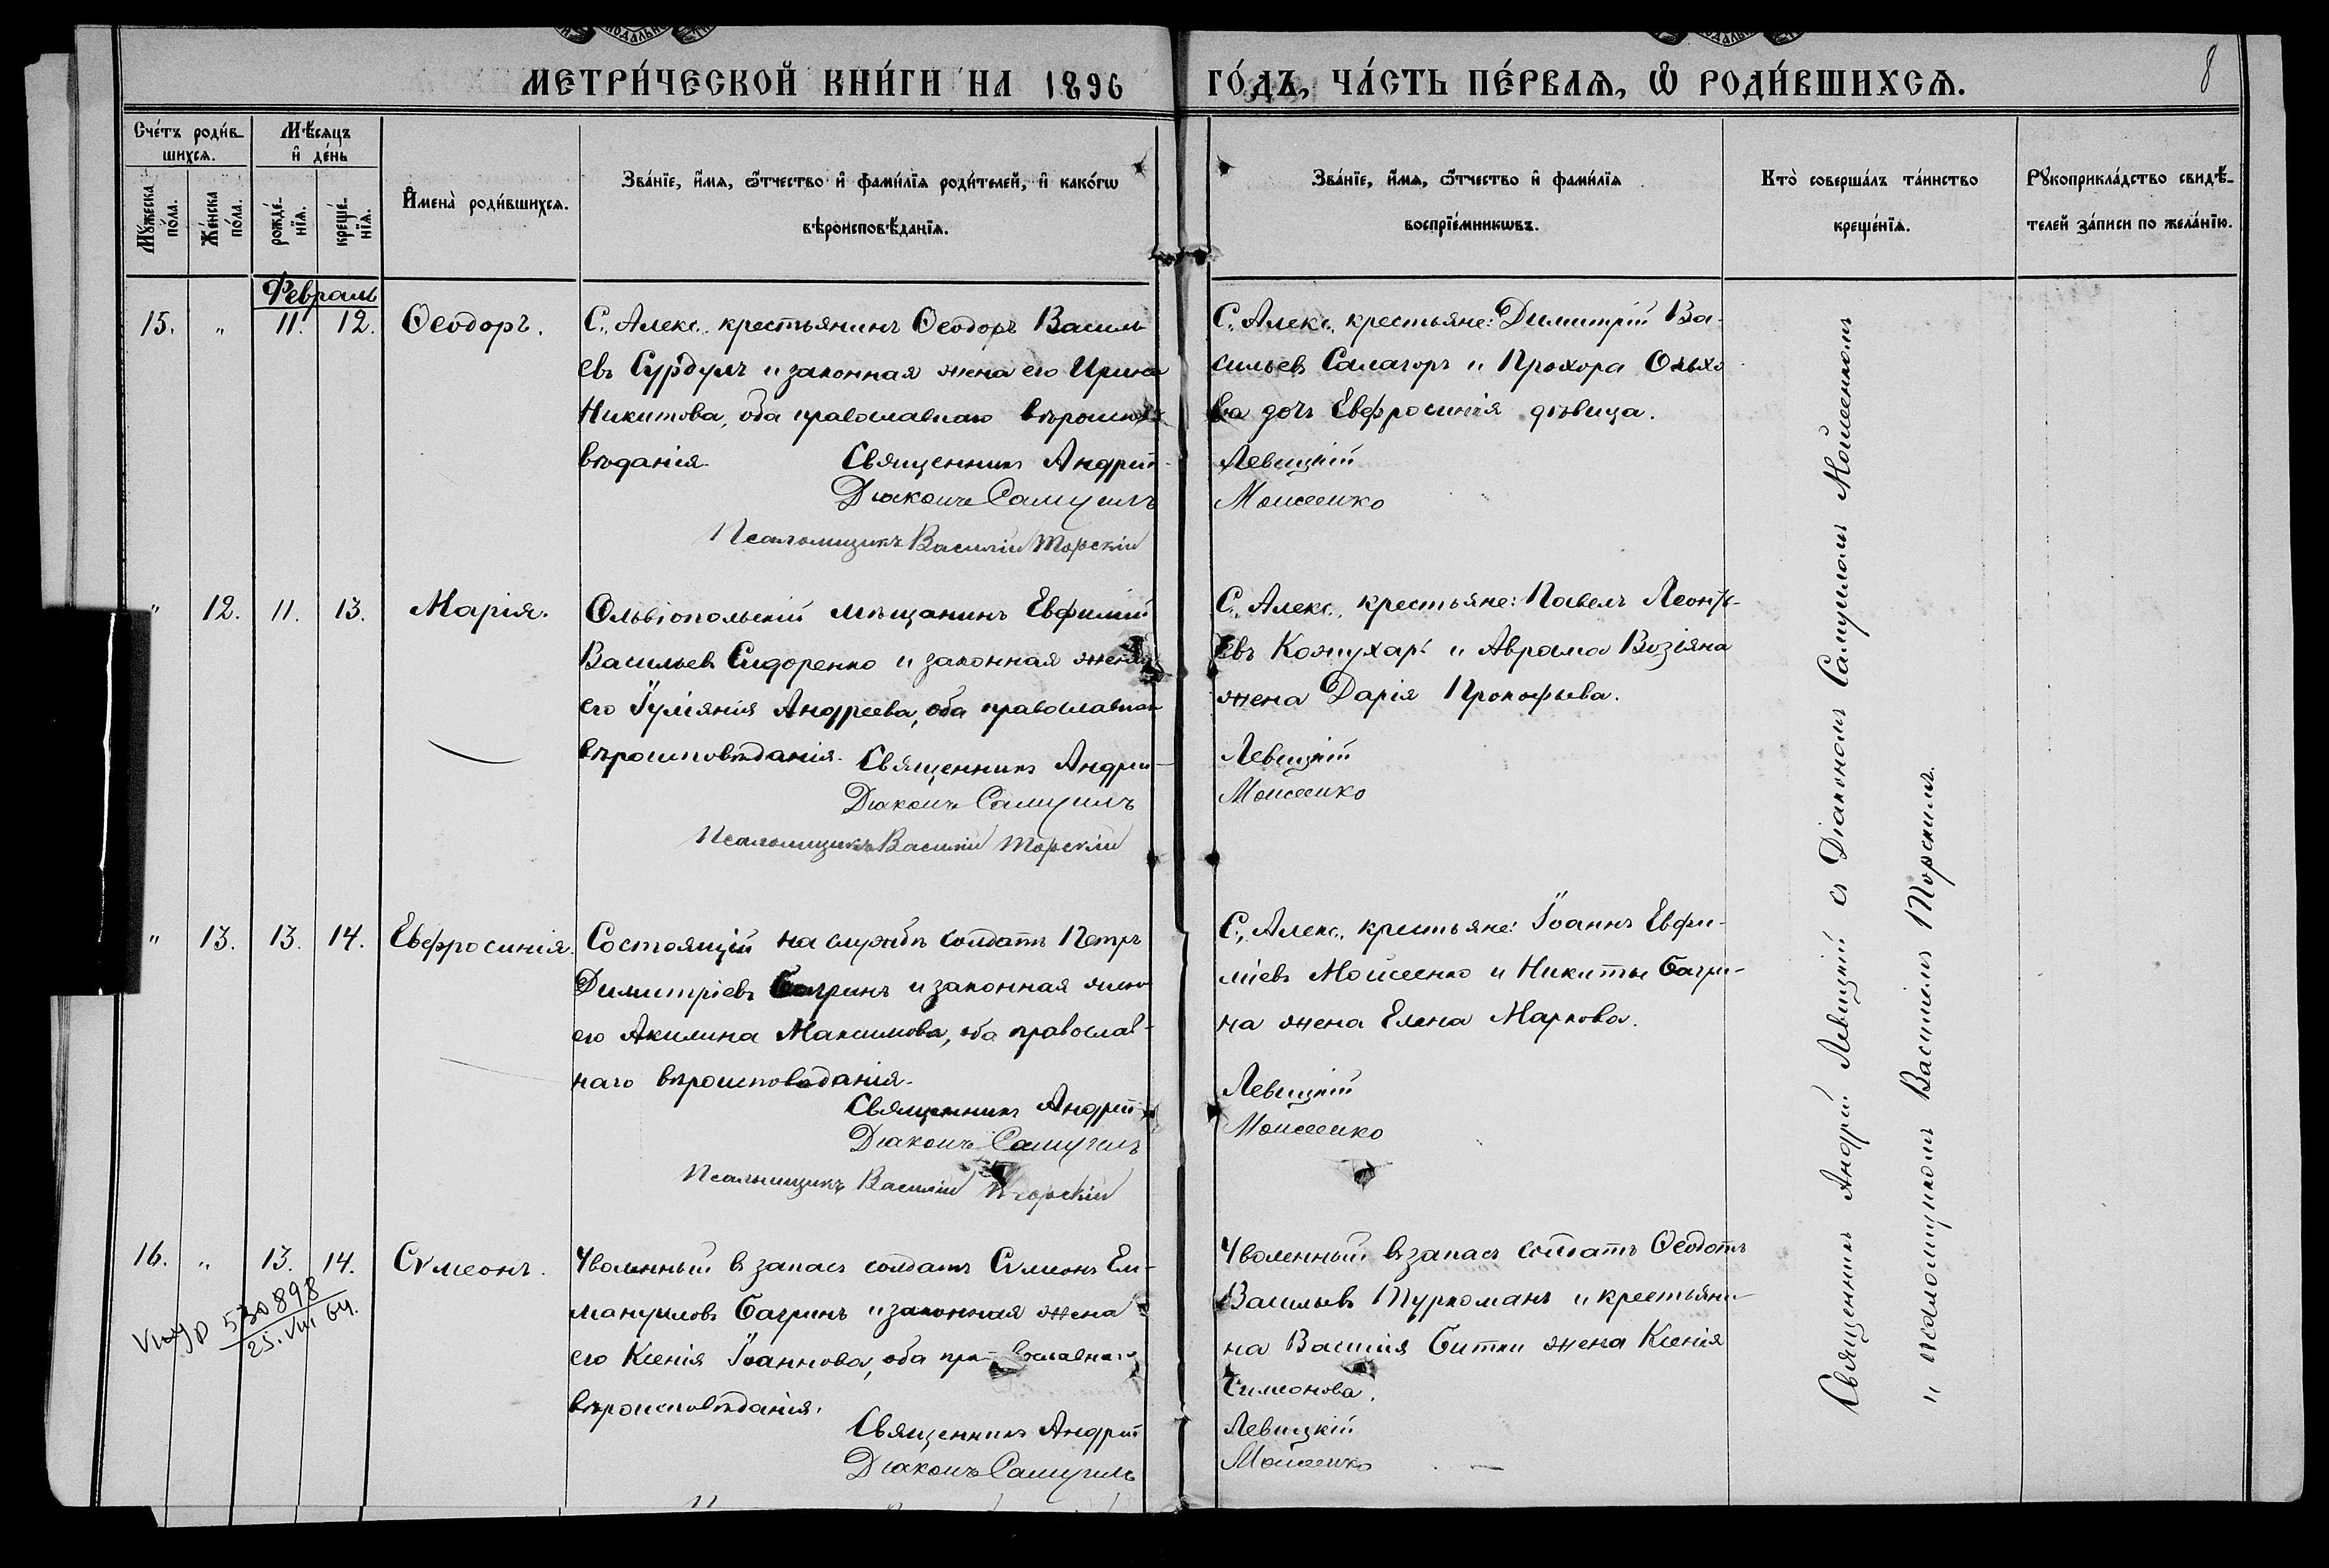 МЕТРИ́ЧЕСКОЙ КНИ́ГИ НА 1896 ГО́ДЪ, ЧА́СТЬ ПЕ́РВАѦ, Ѡ҆ РОДИ́ВШИХСѦ.
8
Сче́тъ роди́в-
шихсѧ.
Мѣ́сѧцъ
и҆ де́нь
Му́жеска
по́ла.
Же́нска
по́ла.
рожде́-
нїѧ.
креще́-
нїѧ.
И҆мена̀ роди́вшихсѧ.
Зва́нїе, и҆́мѧ, ѻ҆́тчество и҆ фами́лїѧ роди́телей, и҆ како́гѡ
вѣроисповѣ́данїѧ.
Зва́нїе, и҆́мѧ, ѻ҆́тчество и҆ фами́лїѧ
воспрїе́мникѡвъ.
Кто̀ соверша́лъ та́инство
креще́нїѧ.
Рꙋкоприкла́дство свидѣ́-
телей за́писи по жела́нїю.
Февраль
15. „ 11. 12. Ѳеодоръ.
С. Алекс. крестьянинъ Ѳеодоръ Василь
евъ Сурдулъ и законная жена его Ирина
Никитова, оба православнаго вѣроиспо
вѣданія.
Священникъ Андрей
Діаконъ Самуилъ
Псаломщикъ Василій Торскій
С. Алекс. крестьяне: Димитрій Ва-
сильевъ Салагоръ и Прохора Ольхо
ва дочь Евфросинія дѣвица.
Левицкій
Моисеенко
„ 12. 11. 13. Марія.
Ольвіопольскій мѣщанинъ Евфимій
Васильевъ Сидоренко и законная жена
его Іуліанія Андреева, оба православнаго
вѣроисповѣданія.
Священникъ Андрей
Діаконъ Самуилъ
Псаломщикъ Василій Торскій
С. Алекс. крестьяне: Павелъ Леонть-
евъ Кожухарь и Аврама Возіяна
жена Дарія Прокофьева.
Левицкій
Моисеенко
„ 13. 13. 14. Евфросинія.
Состоящій на службѣ солдатъ Петръ
Димитріевъ Багринъ и законная жена
его Акилина Максимова, оба православ-
наго вѣроисповѣданія.
Священникъ Андрей
Діаконъ Самуилъ
Псаломщикъ Василій Торскій
С. Алекс. крестьяне: Іоаннъ Евфи-
міевъ Моисеенко и Никиты Багри-
на жена Елена Маркова.
Левицкій
Моисеенко
16. „ 13. 14. Сѵмеонъ.
530898
25. VIII 64.
Уволенный в запасъ солдатъ Сѵмеонъ Ем-
мануиловъ Багринъ и законная жена
его Ксенія Іоаннова, оба православнаго
вѣроисповѣданія.
Священникъ Андрей
Діаконъ Самуилъ
Уволенный в запасъ солдатъ Ѳеодотъ
Васильевъ Туркоманъ и крестьяни-
на Василія Битки жена Ксенія
Симеонова.
Левицкій
Моисеенко
Священникъ Андрей Левицкій съ Діакономъ Самуиломъ Моисеенкомъ
и псаломщикомъ Василіемъ Торскимъ.